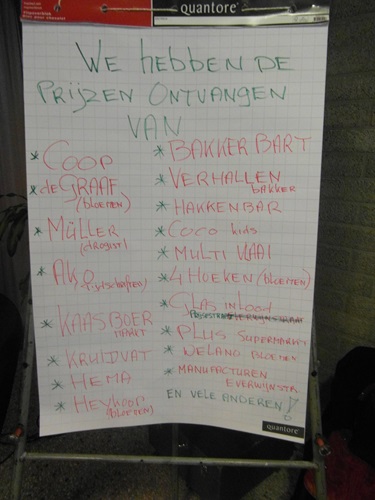 quantore
WE hebben DE
PRIJZEN ONTVANGEN
VAN
* COOP
* de GRAAF
(bloemen)
* Müller
(drogist)
* AKO
(tijdschriften)
* KAASBOER
MARKT
* KRUIDVAT
* HEMA
* Heykoop
(bloemen)
* BAKKER BART
* VERHALLEN
bakker
* HAKKENBAR
* COCO kids
* MULTI VLAAI
* 4 HOEKEN (bloemen)
* GLAS IN LOOD
* PLUS SUPERMARKT
* WELAND BLOEMEN
* MANUFACTUREN
EVERWIJNSTR.
EN VELE ANDEREN!
quantore